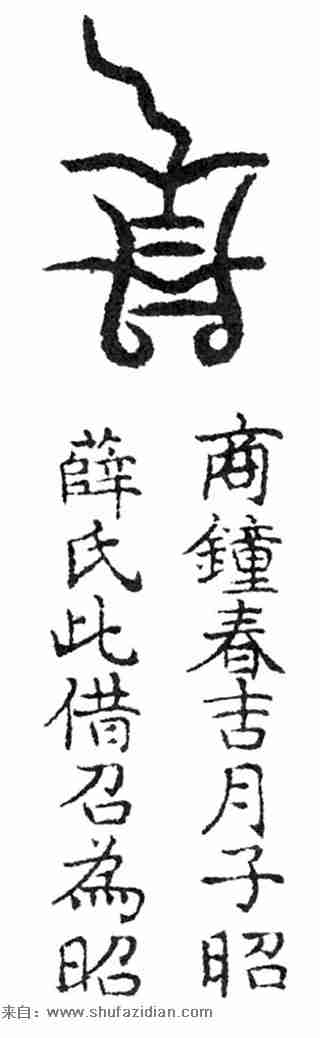 商鐘春吉月子昭
薛氏此借召為昭
来自：www.shufazidian.com